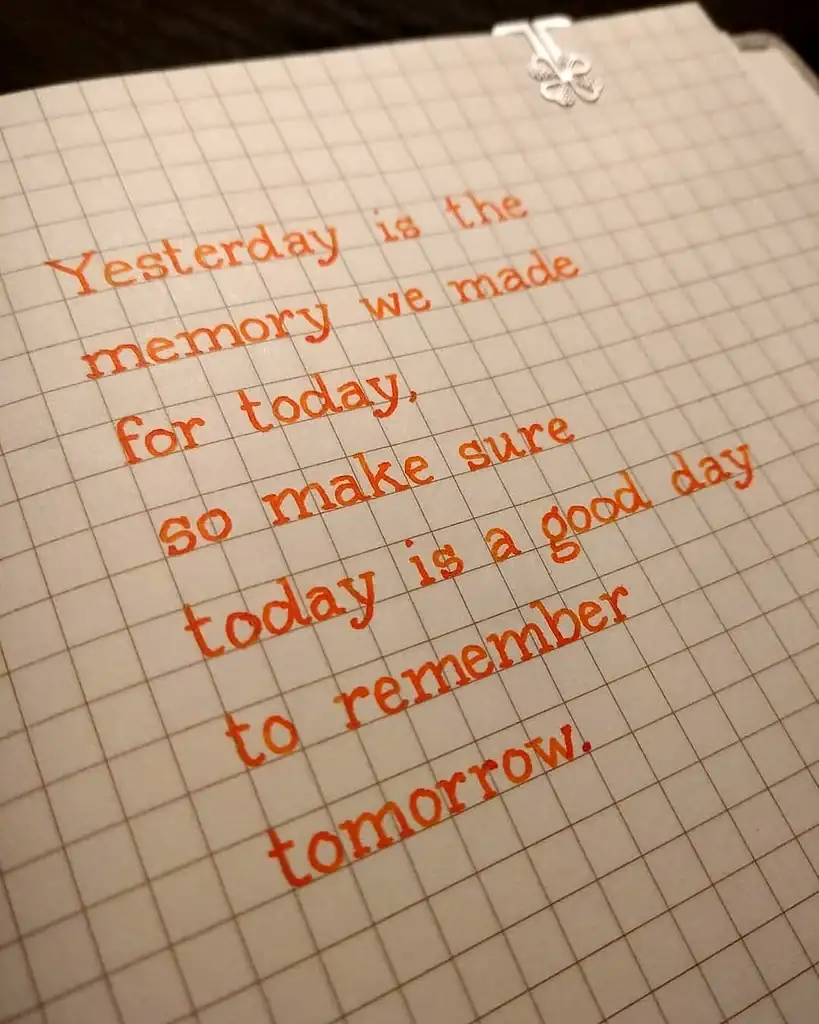 Yesterday is the
memory we made
for today,
so make sure
today is a good day
to remember
tomorrow.